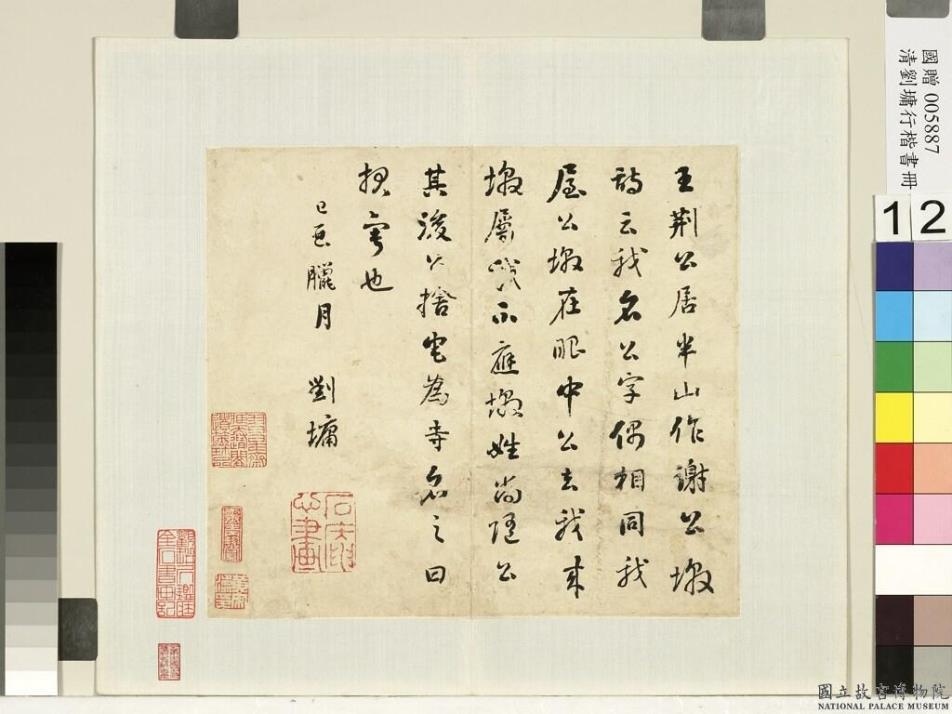 王荊公居半山作謝公墩
詩云我名公字偶相同我
屋公墩在眼中公去我來
墩屬我不應墩姓尚隨公
其後公捨宅為寺名之曰
報寧也
己酉臘月 劉墉
國贈 005887
清劉墉行楷書冊
12
國立故宮博物院
NATIONAL PALACE MUSEUM